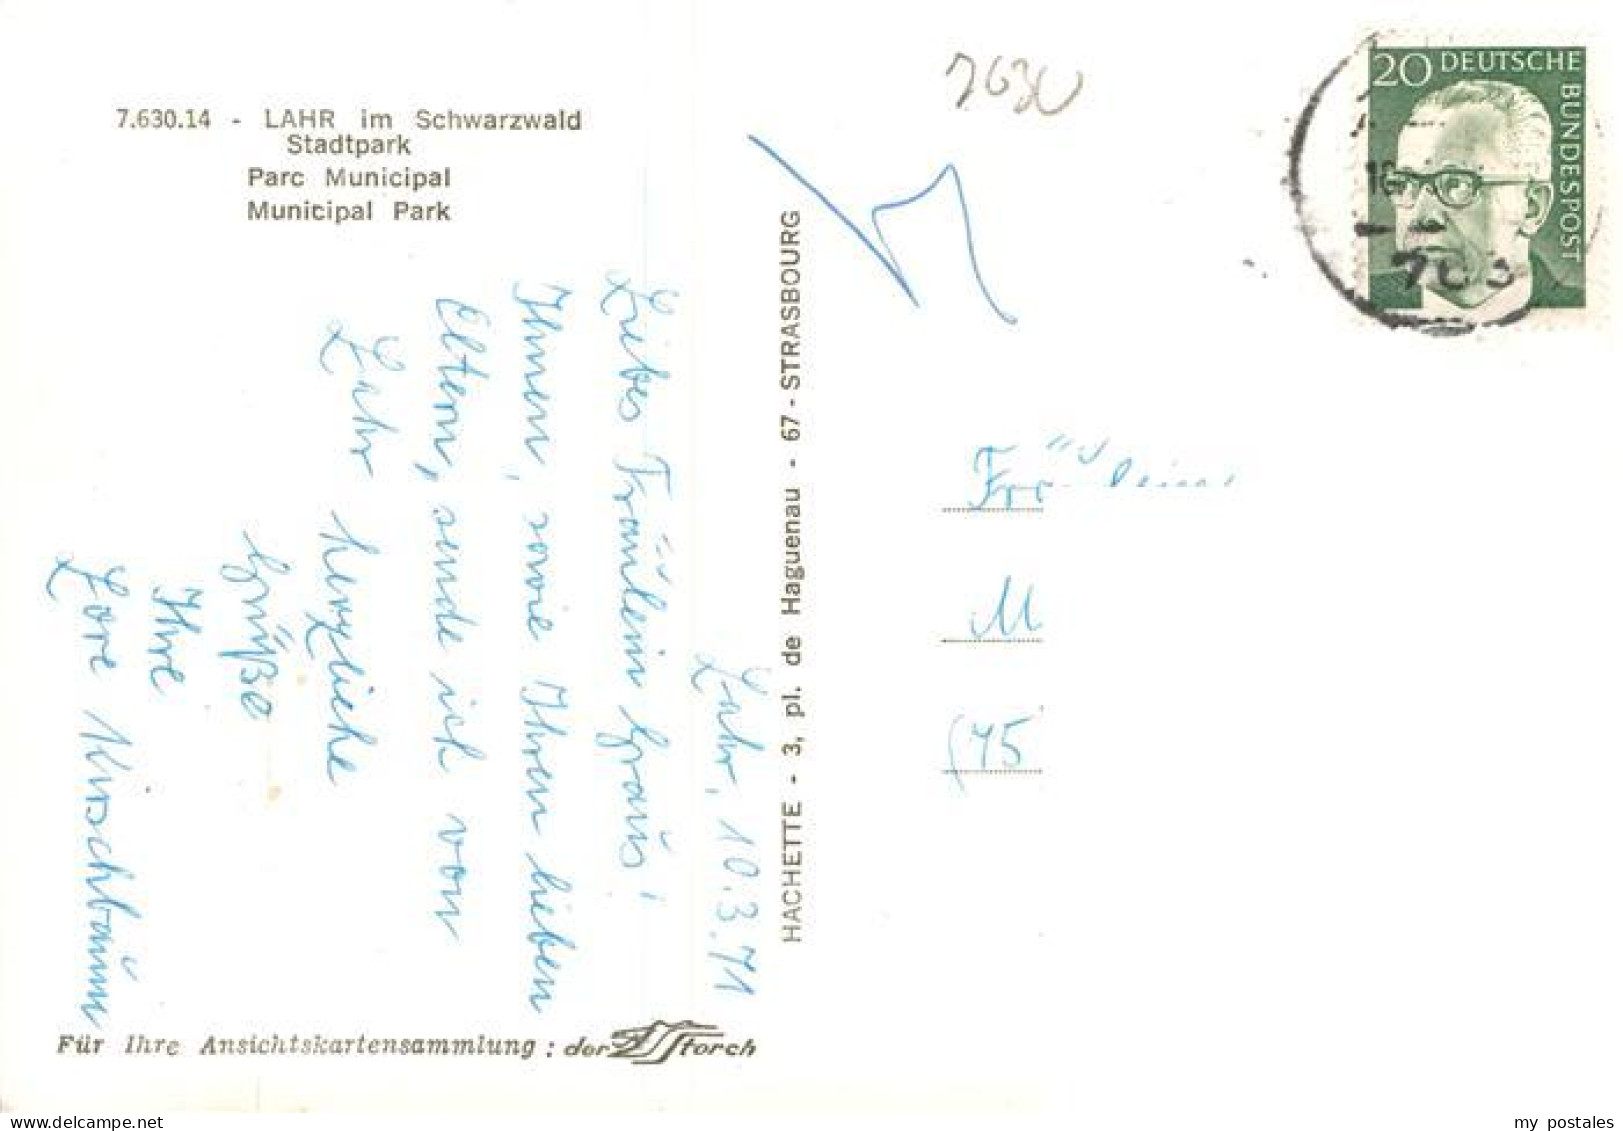 7.630.14 - LAHR im Schwarzwald
Stadtpark
Parc Municipal
Municipal Park
Lahr, 10.3.71
Liebes Fräulein Graus!
Ihnen, sowie Ihren lieben
Eltern, sende ich von
Lahr herzliche
Grüße
Ihre
Lore Kirschbaum
Für Ihre Ansichtskartensammlung : der Storch
HACHETTE - 3, pl. de Haguenau - 67 - STRASBOURG
7630
20 DEUTSCHE
BUNDESPOST
763
M
(75
my postales